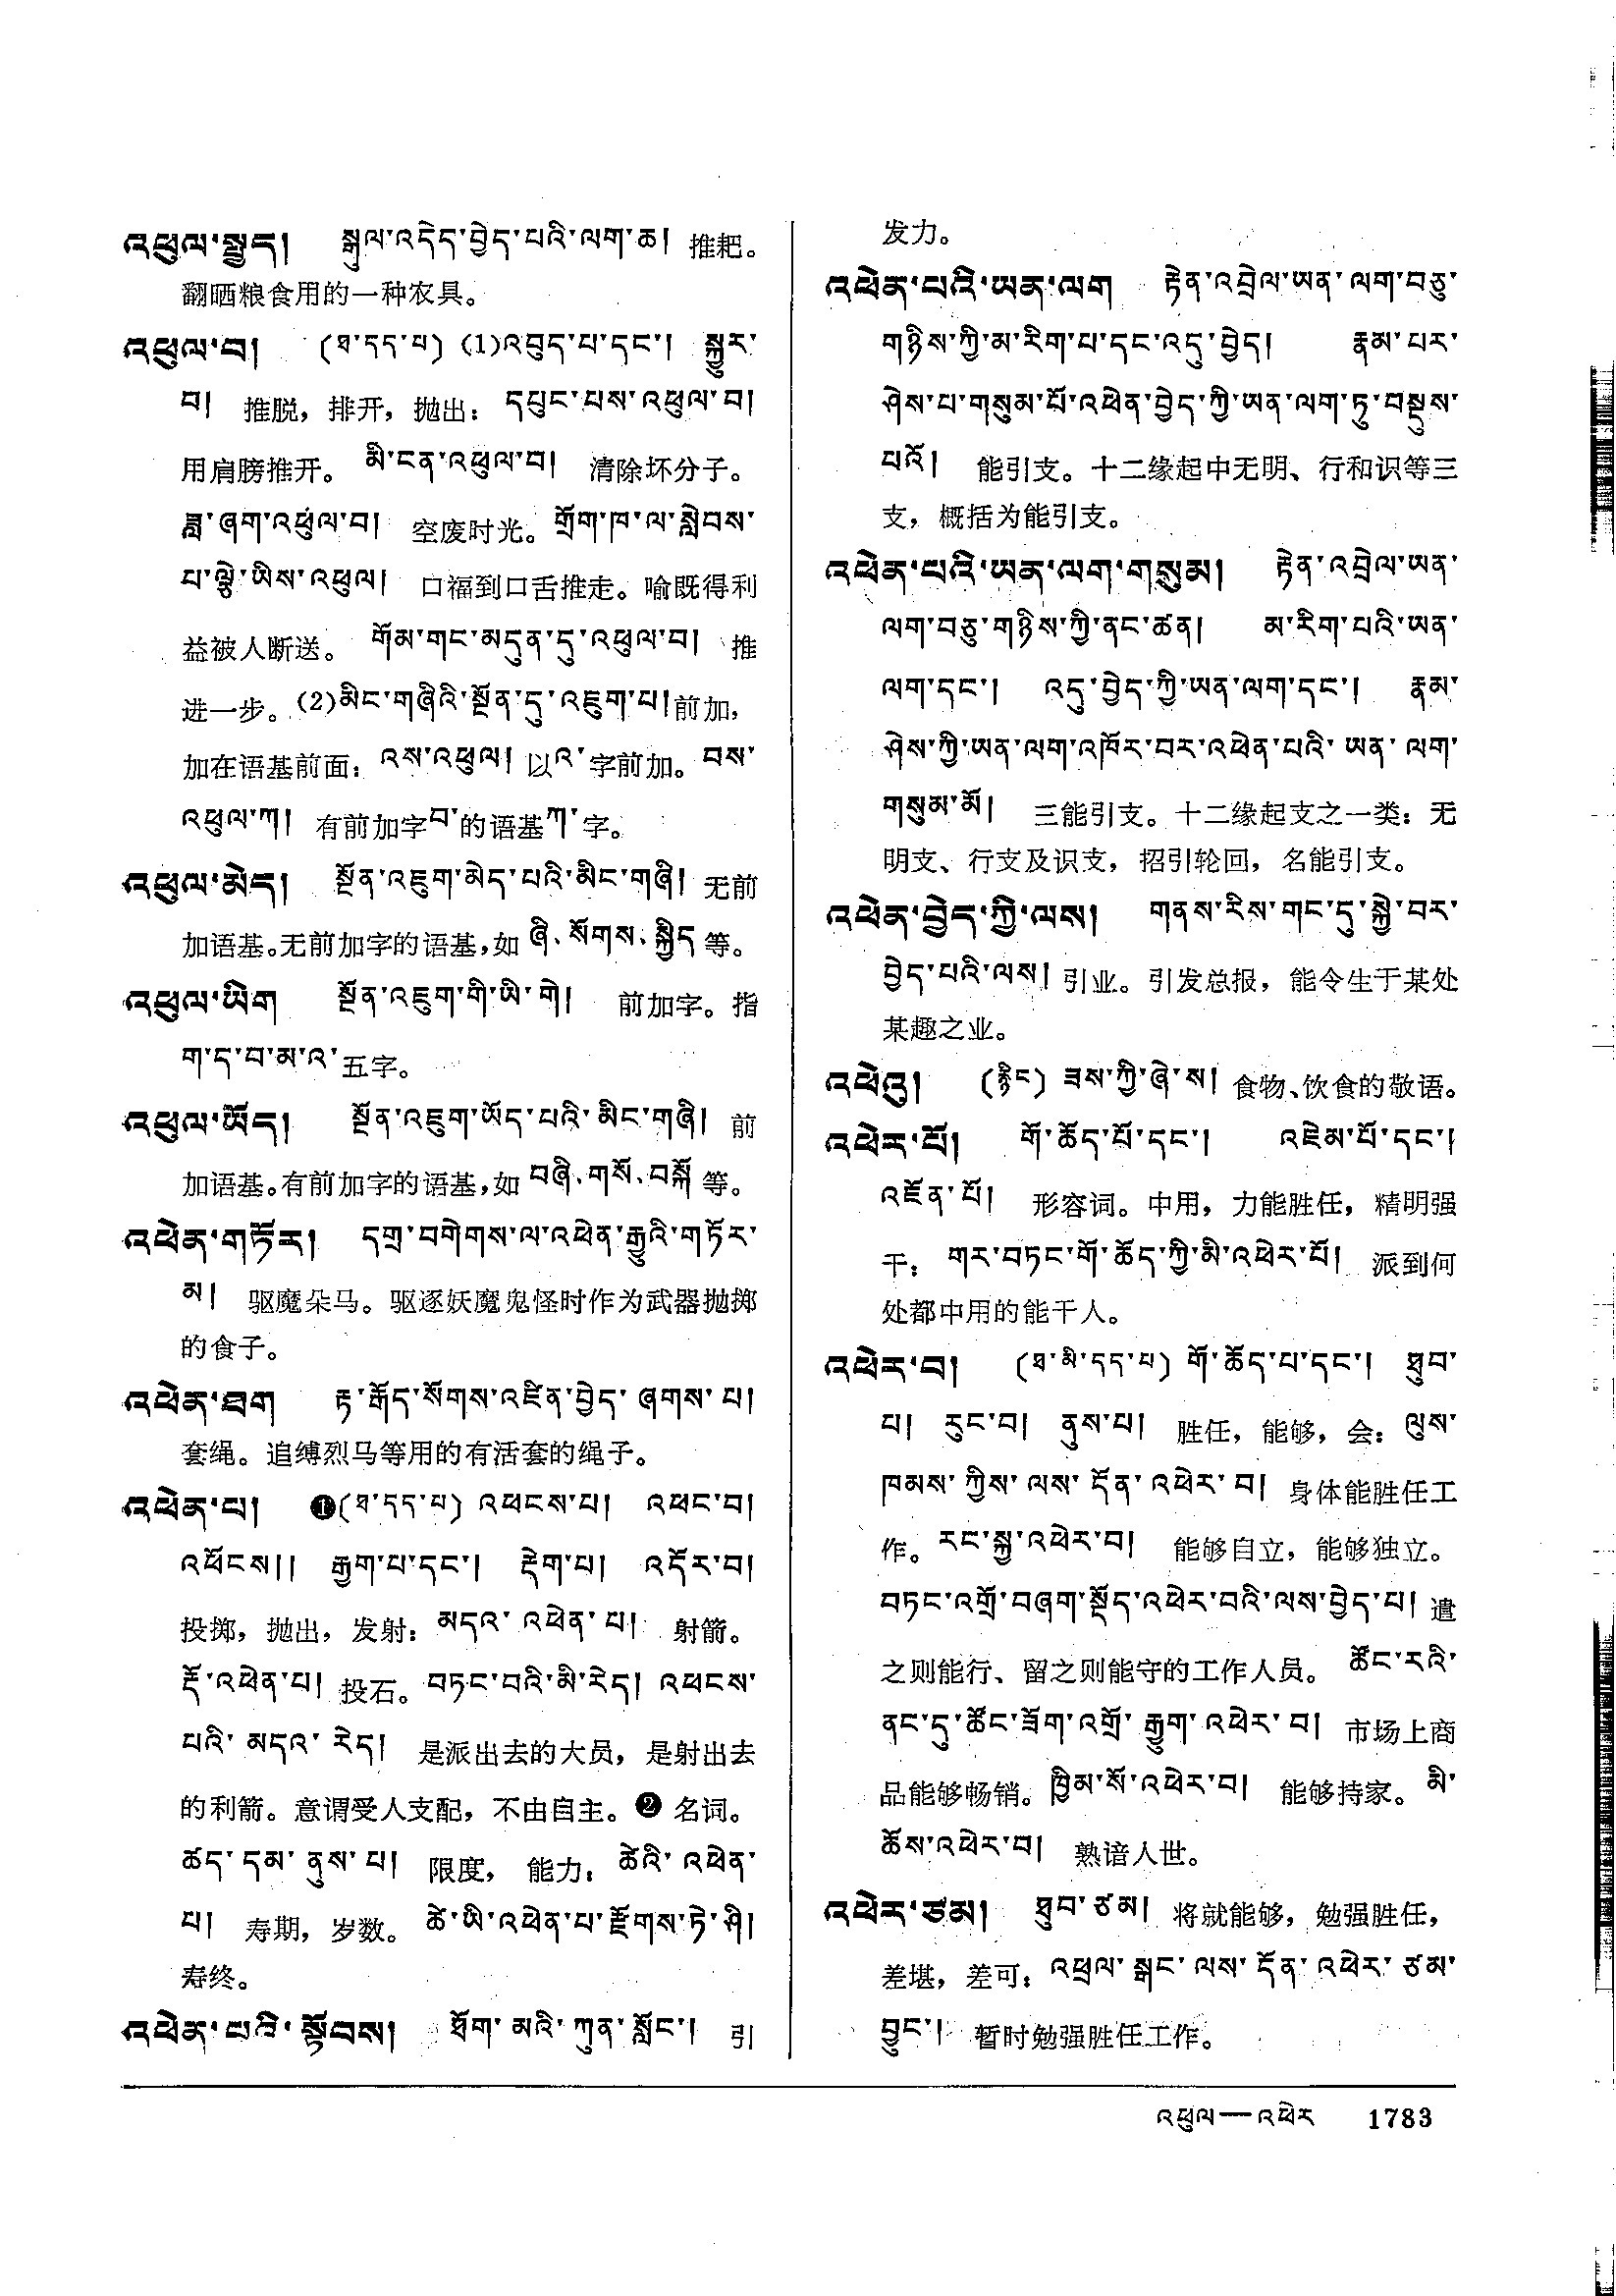 འཕུལ་སྦྱད། སྐུལ་འདེད་བྱེད་པའི་ལག་ཆ། 推耙。
翻晒粮食用的一种农具。
འཕུལ་བ། (ཐ་དད་པ) (1)འབུད་པ་དང་། སྐྱུར་
བ། 推脱，排开，抛出：དཔུང་པས་འཕུལ་བ།
用肩膀推开。 མི་ངན་འཕུལ་བ། 清除坏分子。
ཟླ་ཞག་འཕུལ་བ། 空废时光。གྲོག་ཁ་ལ་སླེབས་
པ་ལྕེ་ཡིས་འཕུལ། 口福到口舌推走。喻既得利
益被人断送。 གོམ་གང་མདུན་དུ་འཕུལ་བ། 推
进一步。(2)མིང་གཞིའི་སྔོན་དུ་འཇུག་པ།前加，
加在语基前面：འས་འཕུལ། 以འ་字前加。བས་
འཕུལ་ཀ། 有前加字བ་的语基ཀ་字。
འཕུལ་མེད། སྔོན་འཇུག་མེད་པའི་མིང་གཞི། 无前
加语基。无前加字的语基，如 ཞི、སོགས、སྐྱིད 等。
འཕུལ་ཡིག སྔོན་འཇུག་གི་ཡི་གེ། 前加字。指
ག་ད་བ་མ་འ་五字。
འཕུལ་ཡོད། སྔོན་འཇུག་ཡོད་པའི་མིང་གཞི། 前
加语基。有前加字的语基，如 བཞི、གསོ、བསྐོ 等。
འཕེན་གཏོར། དགྲ་བགེགས་ལ་འཕེན་རྒྱུའི་གཏོར་
མ། 驱魔朵马。驱逐妖魔鬼怪时作为武器抛掷
的食子。
འཕེན་ཐག རྟ་རྒོད་སོགས་འཛིན་བྱེད་ཞགས་པ།
套绳。追缚烈马等用的有活套的绳子。
འཕེན་པ། ❶(ཐ་དད་པ) འཕངས་པ། འཕང་བ།
འཕོངས།། རྒྱག་པ་དང་། རྡེག་པ། འདོར་བ།
投掷，抛出，发射：མདའ་འཕེན་པ། 射箭。
རྡོ་འཕེན་པ། 投石。བཏང་བའི་མི་རེད། འཕངས་
པའི་མདའ་རེད། 是派出去的大员，是射出去
的利箭。意谓受人支配，不由自主。❷ 名词。
ཚད་དམ་ནུས་པ། 限度， 能力：ཚེའི་འཕེན་
པ། 寿期，岁数。 ཚེ་ཡི་འཕེན་པ་རྫོགས་ཏེ་ཤི།
寿终。
འཕེན་པའི་སྟོབས། ཐོག་མའི་ཀུན་སློང་། 引
发力。
འཕེན་པའི་ཡན་ལག རྟེན་འབྲེལ་ཡན་ལག་བཅུ་
གཉིས་ཀྱི་མ་རིག་པ་དང་འདུ་བྱེད། རྣམ་པར་
ཤེས་པ་གསུམ་པོ་འཕེན་བྱེད་ཀྱི་ཡན་ལག་ཏུ་བསྡུས་
པའོ། 能引支。十二缘起中无明、行和识等三
支，概括为能引支。
འཕེན་པའི་ཡན་ལག་གསུམ། རྟེན་འབྲེལ་ཡན་
ལག་བཅུ་གཉིས་ཀྱི་ནང་ཚན། མ་རིག་པའི་ཡན་
ལག་དང་། འདུ་བྱེད་ཀྱི་ཡན་ལག་དང་། རྣམ་
ཤེས་ཀྱི་ཡན་ལག་འཁོར་བར་འཕེན་པའི་ཡན་ལག་
གསུམ་མོ། 三能引支。十二缘起支之一类：无
明支、行支及识支，招引轮回，名能引支。
འཕེན་བྱེད་ཀྱི་ལས། གནས་རིས་གང་དུ་སྐྱེ་བར་
བྱེད་པའི་ལས། 引业。引发总报，能令生于某处
某趣之业。
འཕེའུ། (རྙིང) ཟས་ཀྱི་ཞེ་ས། 食物、饮食的敬语。
འཕེར་པོ། གོ་ཆོད་པོ་དང་། འཇེམ་པོ་དང་།
འཇོན་པོ། 形容词。中用，力能胜任，精明强
干：གར་བཏང་གོ་ཆོད་ཀྱི་མི་འཕེར་པོ། 派到何
处都中用的能干人。
འཕེར་བ། (ཐ་མི་དད་པ) གོ་ཆོད་པ་དང་། ཐུབ་
པ། རུང་བ། ནུས་པ། 胜任，能够，会：ལུས་
ཁམས་ཀྱིས་ལས་དོན་འཕེར་བ། 身体能胜任工
作。རང་སྐྱ་འཕེར་བ། 能够自立，能够独立。
བཏང་འགྲོ་བཞག་སྡོད་འཕེར་བའི་ལས་བྱེད་པ། 遣
之则能行、留之则能守的工作人员。 ཚོང་རའི་
ནང་དུ་ཚོང་ཟོག་འགྲོ་རྒྱུག་འཕེར་བ། 市场上商
品能够畅销。ཁྱིམ་སོ་འཕེར་བ། 能够持家。མི་
ཆོས་འཕེར་བ། 熟谙人世。
འཕེར་ཙམ། ཐུབ་ཙམ། 将就能够，勉强胜任，
差堪，差可：འཕྲལ་སྒང་ལས་དོན་འཕེར་ཙམ་
བྱུང་། 暂时勉强胜任工作。
འཕུལ—འཕེར 1783